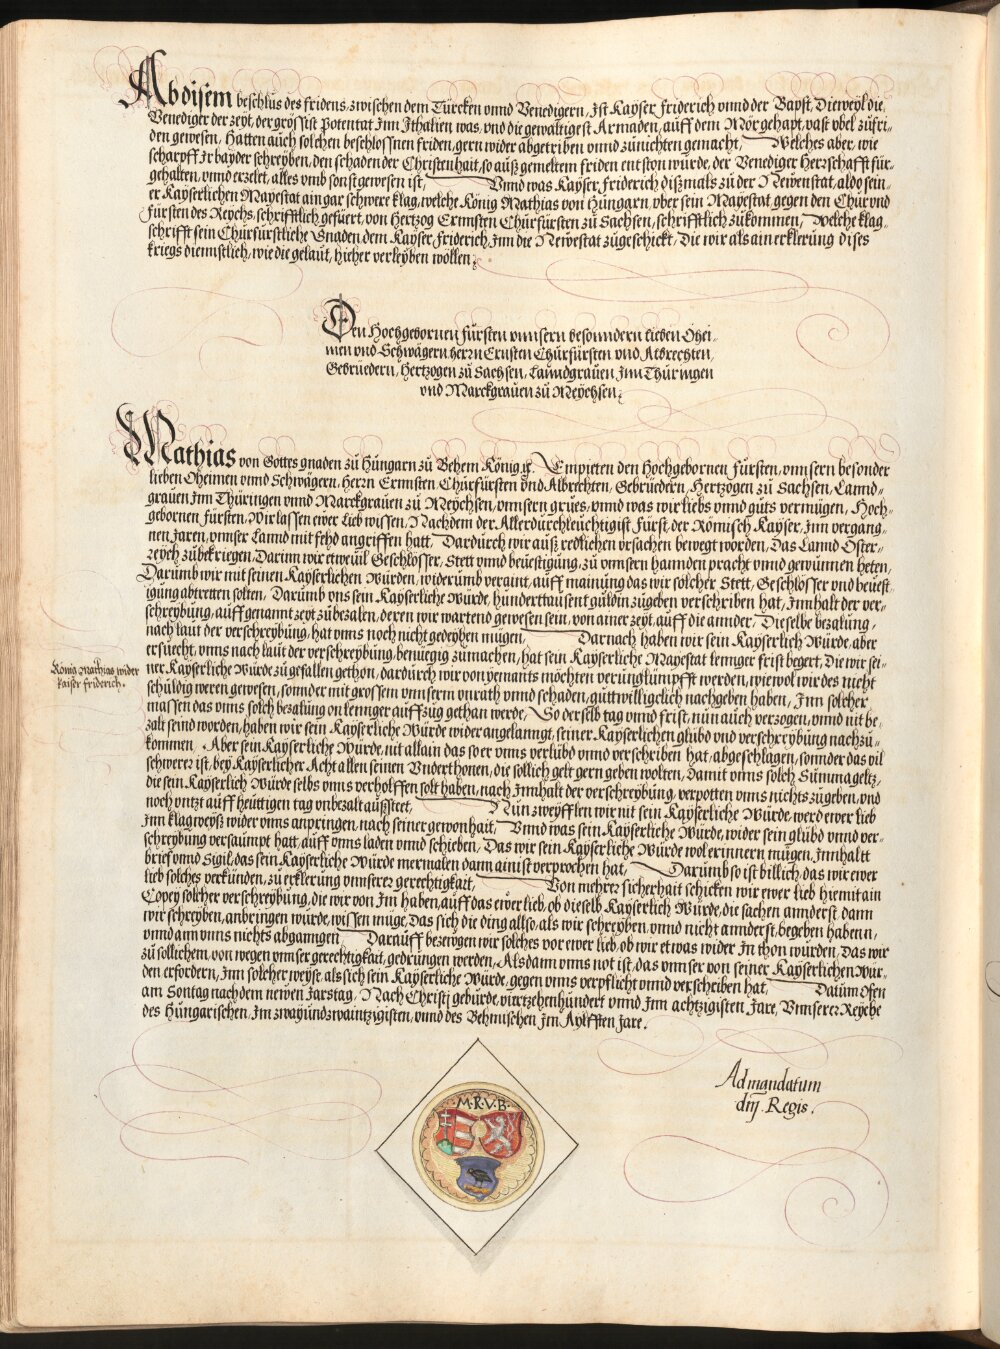 Ab disem beschlus des fridens, zwischen dem Türcken vnnd Venedigern, Ist Kayser Friderich vnnd der Bapst, Dieweyl die
Venediger der zeyt, der grössist Potentat Inn Ithalien was, vnd die gewaltigest Armaden, auff dem Mör gehapt, vast vbel zufri-
den gewesen, Hatten auch solchen beschlossnen friden, gern wider abgetriben vnnd zunichten gemacht, Welches aber, wie
scharpff Ir bayder schreyben, den schaden der Christenhait, so auß gemeltem friden entston würde, der Venediger Herrschafft für-
gehalten, vnnd erzelet, alles vmb sonst gewesen ist, Vnnd was Kayser, Friderich dißmals zu der Newenstat, aldo sein-
er Kayserlichen Mayestat ain gar schwere klag, welche König Mathias von Hungarn, vber sein Mayestat gegen den Chur vnd
Fürsten des Reychs, schrifftlich gefuert, von Hertzog Ernnsten Churfürsten zu Sachsen, schrifftlich zukommen, Welche klag-
schrifft sein Churfürstliche Gnaden dem Kayser, Friderich, Inn die Newestat zugeschickt, Die wir als ain erklerung dises
kriegs diennstlich, wie die gelaut, hieher verleyben wollen;
Den Hochgebornen Fürsten vnnsern besonndern lieben Ohei-
men vnd Schwägern herrn Ernsten Churfürsten vnd Albrechten,
Gebrüedern, Hertzogen zu Sachsen, Lanndgrauen Inn Thüringen
vnd Marckgrauen zu Meychsen;
Mathias von Gottes gnaden zu Hungarn zu Behem König &c. Empieten den Hochgebornen Fürsten, vnnsern besonder
lieben Oheimen vnnd Schwägern, Herrn Ernnsten Churfürsten vnd Albrechten, Gebrüedern, Hertzogen zu Sachsen, Lannd-
grauen Inn Thüringen vnnd Marckgrauen zu Meychsen, vnnsern grues, vnnd was wir liebs vnnd guts vermügen, Hoch-
gebornen Fürsten, Wir lassen ewer Lieb wissen, Nachdem der Allerdurchleuchtigist Fürst, der Römisch Kayser, Inn vergang-
nen Jaren, vnnser Lannd mit fehd angriffen hatt, Dardurch wir auß redlichen vrsachen bewegt worden, Das Lannd Öster-
reych zu bekriegen, Darinn wir etweuil Geschlösser, Stett vnnd beuestigung, zu vnnsern hannden pracht vnnd gewunnen heten,
Darumb wir mit seinen Kayserlichen Würden, widerumb veraint, auff mainung das wir solcher Stett, Geschlösser vnd beuest
igung abtretten solten, Darumb vns sein Kayserliche Würde, hunderttausent guldin zugeben verschriben hat, Innhalt der ver-
schreybung, auff genannt zeyt zubezalen, deren wir wartend gewesen sein, von ainer zeyt, auff die annder, Dieselbe bezalung,
nach laut der verschreybung, hat vnns noch nicht gedeyhen mügen, Darnach haben wir sein Kayserlich Würde, aber
ersuecht, vnns nach laut der verschreybung, benüegig zumachen, hat sein Kayserliche Mayestat lenger frist begert, Die wir sei-
ner Kayserliche Würde zu gefallen gethon, dardurch wir von yemants möchten verunglümpfft werden, wiewol wir des nicht
schuldig weren gewesen, sonnder mit grossem vnnserm vnrath vnnd schaden, guttwilligclich nachgeben haben, Inn solcher
massen das vnns solch bezalung on lenger auffzug gethan werde, So derselb tag vnnd frist, nun auch verzogen, vnnd nit be-
zalt seind worden, haben wir sein Kayserliche Würde wider angelanngt, seiner Kayserlichen glübd vnd verschreybung nachzu-
kommen, Aber sein Kayserliche Würde, nit allain das so er vnns verlübd vnnd verschriben hat, abgeschlagen, sonnder das vil
schwerer ist, bey Kayserlicher Acht allen seinen Vnderthonen, die sollich gelt gern geben wolten, damit vnns solch Summa geltz,
die sein Kayserlich Würde selbs vnns verholffen solt haben, nach Innhalt der verschreybung, verpotten vnns nichts zugeben, vnd
noch vntzt auff heuttigen tag vnbezalt außstet, Nun zweyfflen wir nit sein Kayserliche Würde, werd ewer lieb
Inn klagweyß wider vnns anpringen, nach seiner gewonhait, Vnnd was sein Kayserliche Würde, wider sein glübd vnnd ver-
schreybung versaumpt hatt, auff vnns laden vnnd schieben, Das wir sein Kayserliche Würde wol erinnern mügen, Innhaltt
brief vnnd Sigil, das sein Kayserliche Würde mermalen dann ainist verprochen hat, Darumb so ist billich, das wir ewer
lieb solches verkünden, zu erklerung vnnserer gerechtigkait, Von mehrer sicherhait schicken wir ewer lieb hiemit ain
Copey solcher verschreybung, die wir von Im haben, auff das ewer lieb, ob dieselb Kayserlich Würde, die sachen annderst dann
wir schreyben, anbringen würde, wissen müge, Das sich die ding allso, als wir schreyben, vnnd nicht annderst, begeben habenn,
vnnd ann vnns nichts abganngen, Darauff bezeugen wir solches vor ewer lieb, ob wir etwas wider In thon würden, Das wir
zu sollichem, von wegen vnnser gerechtigkait, gedrungen werden, Als dann vnns not ist, das vnnser von seiner Kayserlichen Wür-
den erfordern, Inn solcher weyse als sich sein Kayserliche Würde, gegen vnns verpflicht vnnd verschriben hat, Datum Ofen
am Sontag nach dem newen Jarstag, Nach Christi geburde, viertzehenhundert vnnd Inn achtzigisten Jare, Vnnserer Reyche
des Hungarischen, Im zwayundzwaintzigisten, vnnd des Behmischen Im Aylfften Jare.
König Mathias wider
Kaiser Friderich.
Ad mandatum
dnj Regis.
M·R·V·B·